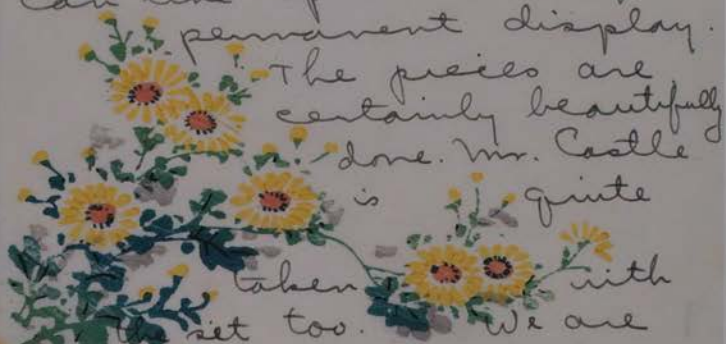 can
permanent display.
The pieces are
certainly beautifully
done. Mr. Castle
is quite
taken with
the set too. We are